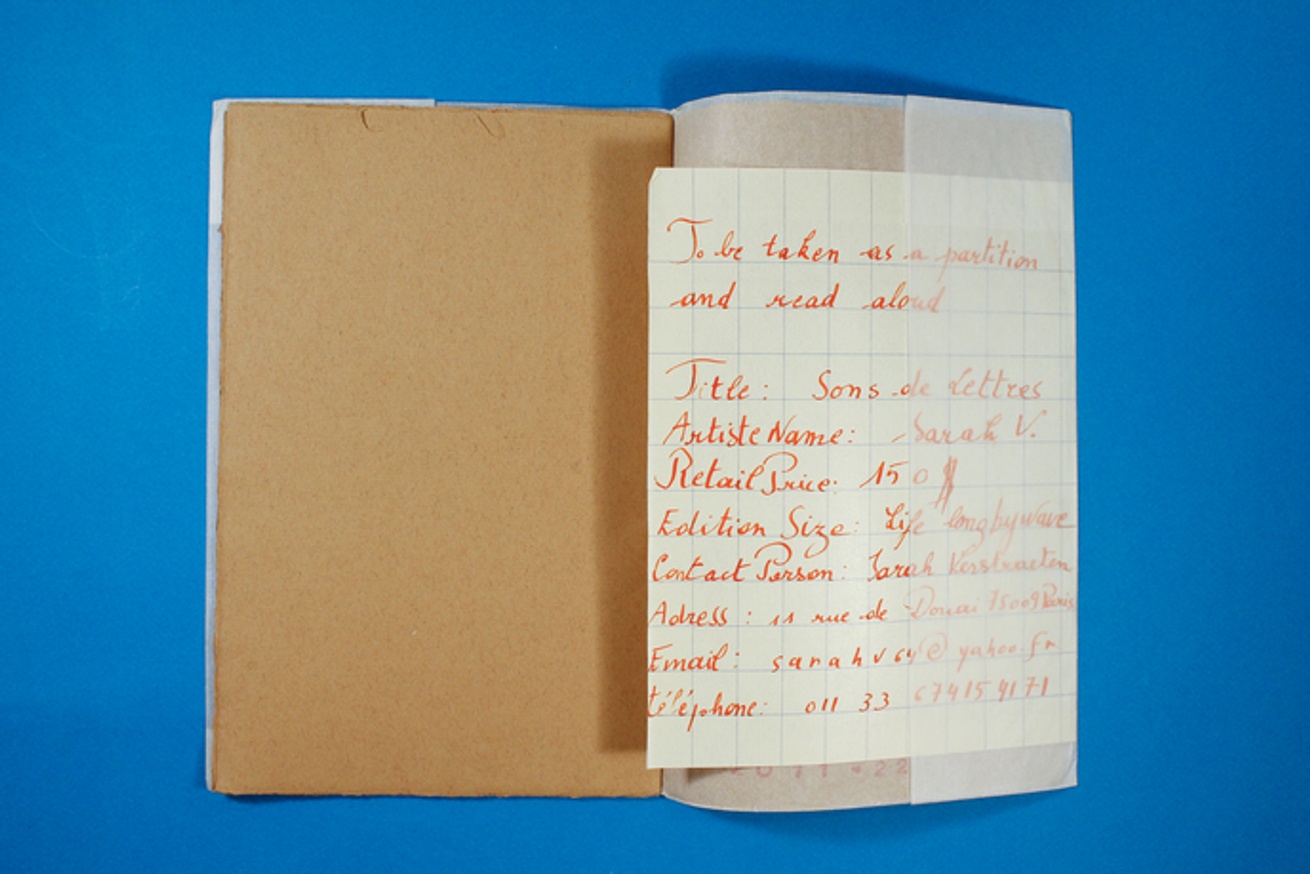 To be taken as a partition
and read aloud
Title: Sons de Lettres
Artiste Name: Sarah V.
Retail Price: 150 $
Edition Size: Life long by wave
Contact Person: Sarah Verstraeten
Adress : 11 rue de Douai 75009 Paris
Email: sarahv64@yahoo.fr
téléphone: 011 33 674154171